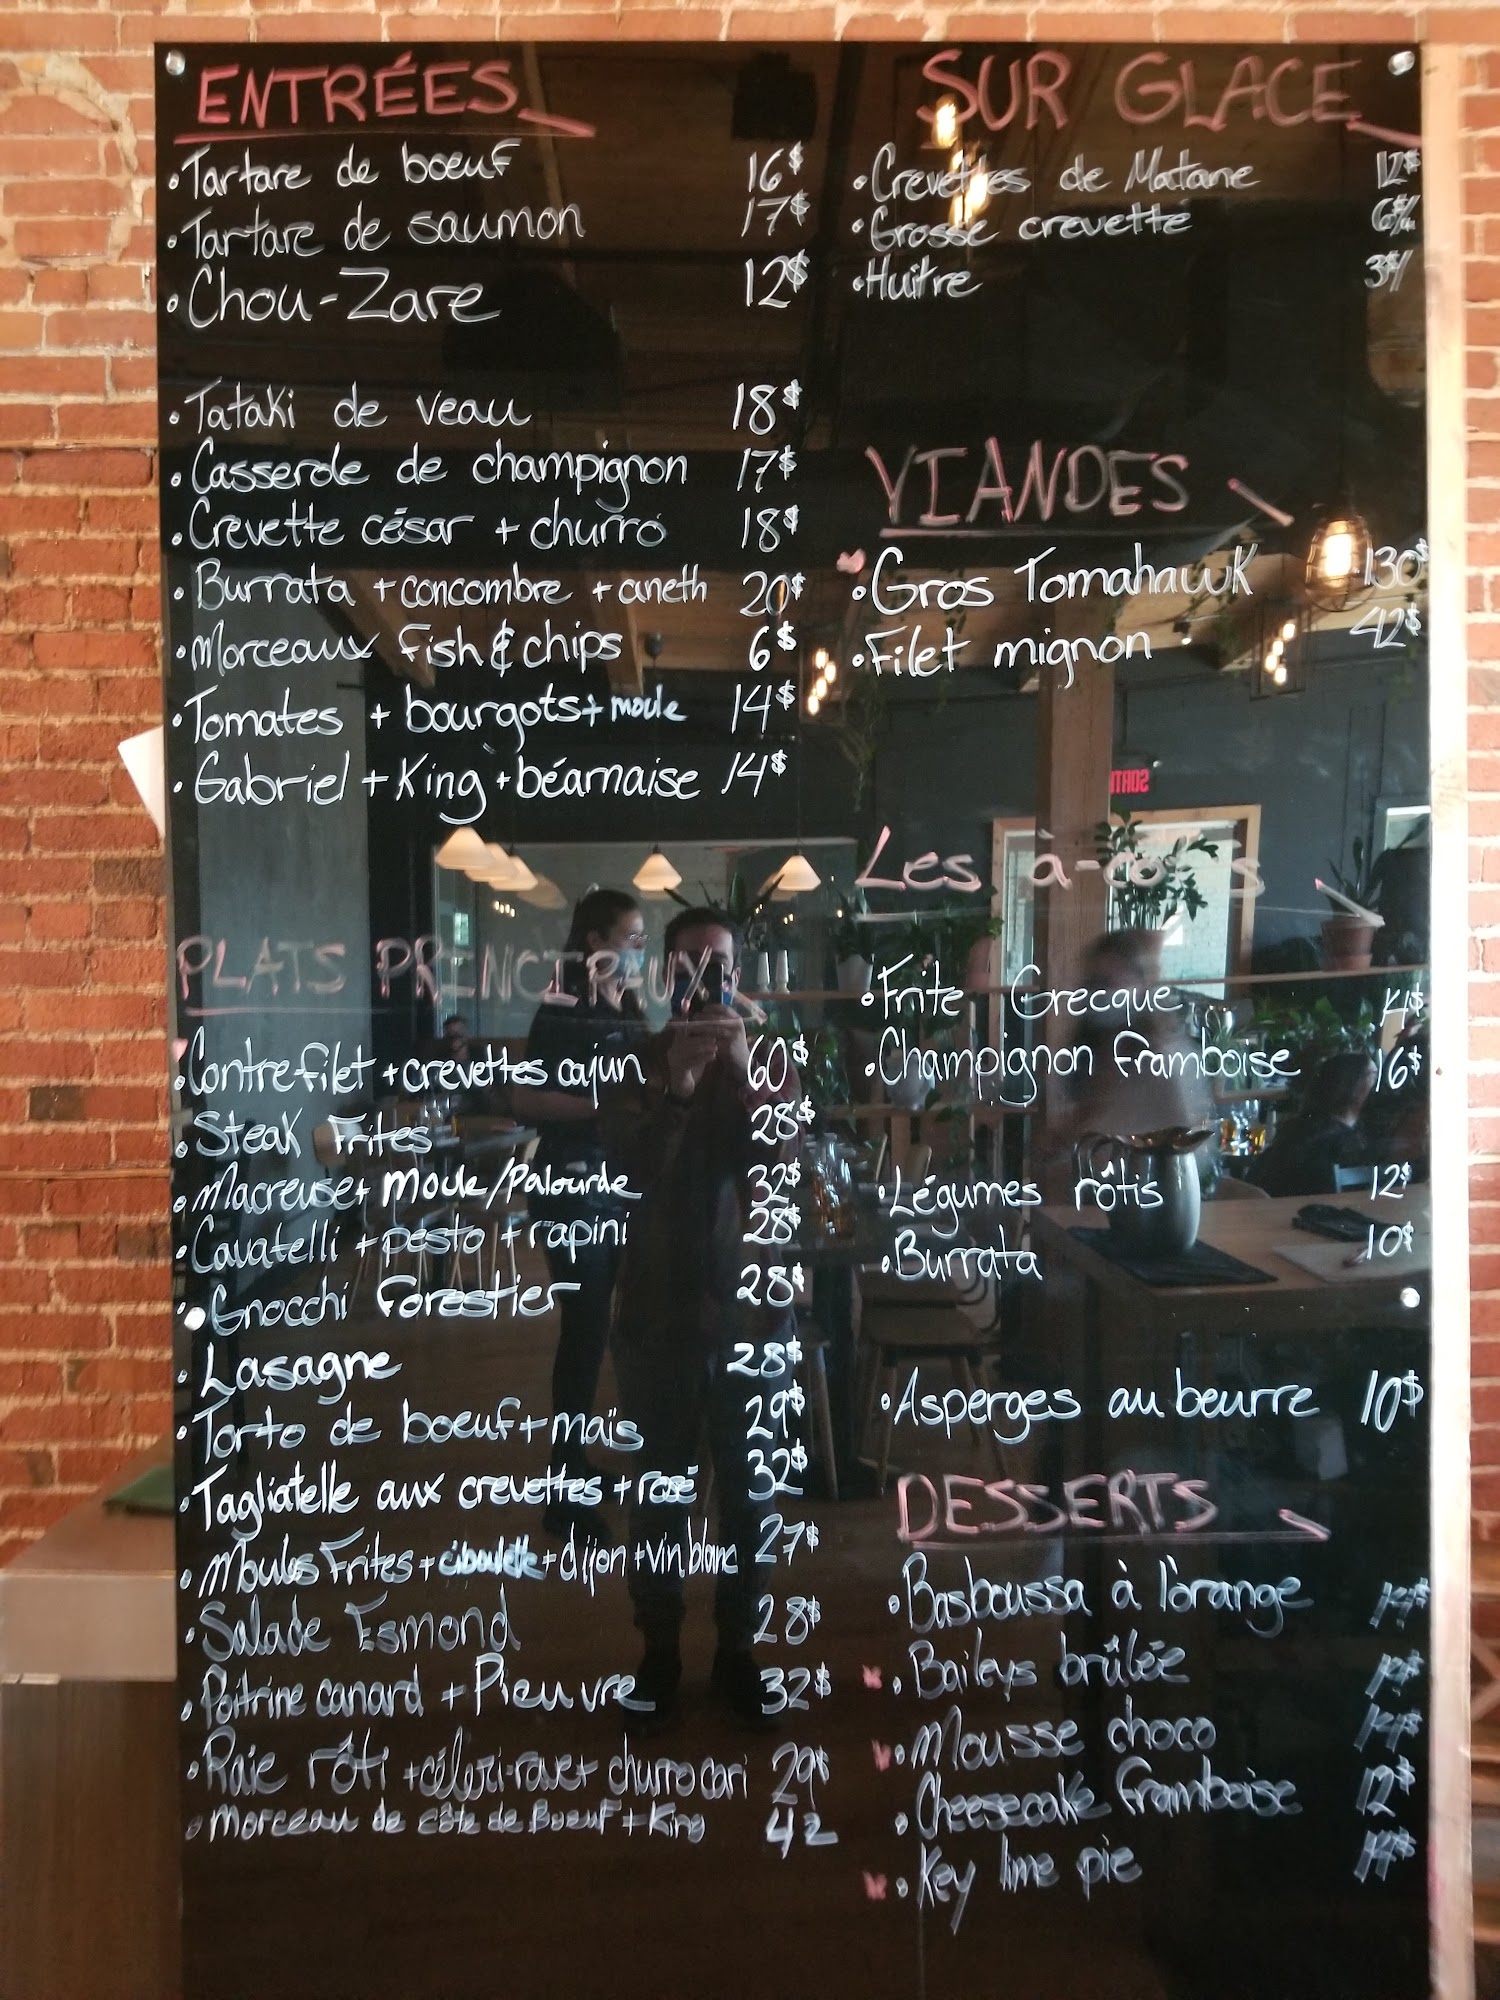 ENTRÉES
• Tartare de boeuf 16$
• Tartare de saumon 17$
• Chou-Zare 12$
• Tataki de veau 18$
• Casserole de champignon 17$
• Crevette césar + churro 18$
• Burrata + concombre + aneth 20$
• Morceaux Fish & chips 6$
• Tomates + bourgots + moule 14$
• Gabriel + King + béarnaise 14$
PLATS PRINCIPAUX
• Contre-filet + crevettes cajun 60$
• Steak Frites 28$
• Macreuse + Moule/Palourde 32$
• Cavatelli + pesto + rapini 28$
• Gnocchi Forestier 28$
• Lasagne 28$
• Torto de boeuf + maïs 29$
• Tagliatelle aux crevettes + rosé 32$
• Moules Frites + ciboulette + dijon + vin blanc 27$
• Salade Esmond 28$
• Poitrine canard + Pieuvre 32$
• Raie rôti + céleri-rave + churro cari 29$
• Morceau de côte de Boeuf + King 42
SUR GLACE
• Crevettes de Matane 12$
• Grosse crevette
• Huitre
VIANDES
• Gros Tomahawk 130$
• Filet mignon 42$
Les à-côtés
• Frite Grecque
• Champignon framboise 16$
• Légumes rôtis 12$
• Burrata 10$
• Asperges au beurre 10$
DESSERTS
• Basboussa à l'orange 14$
• Baileys brûlée 14$
• Mousse choco 14$
• Cheesecake framboise 12$
• Key lime pie 14$